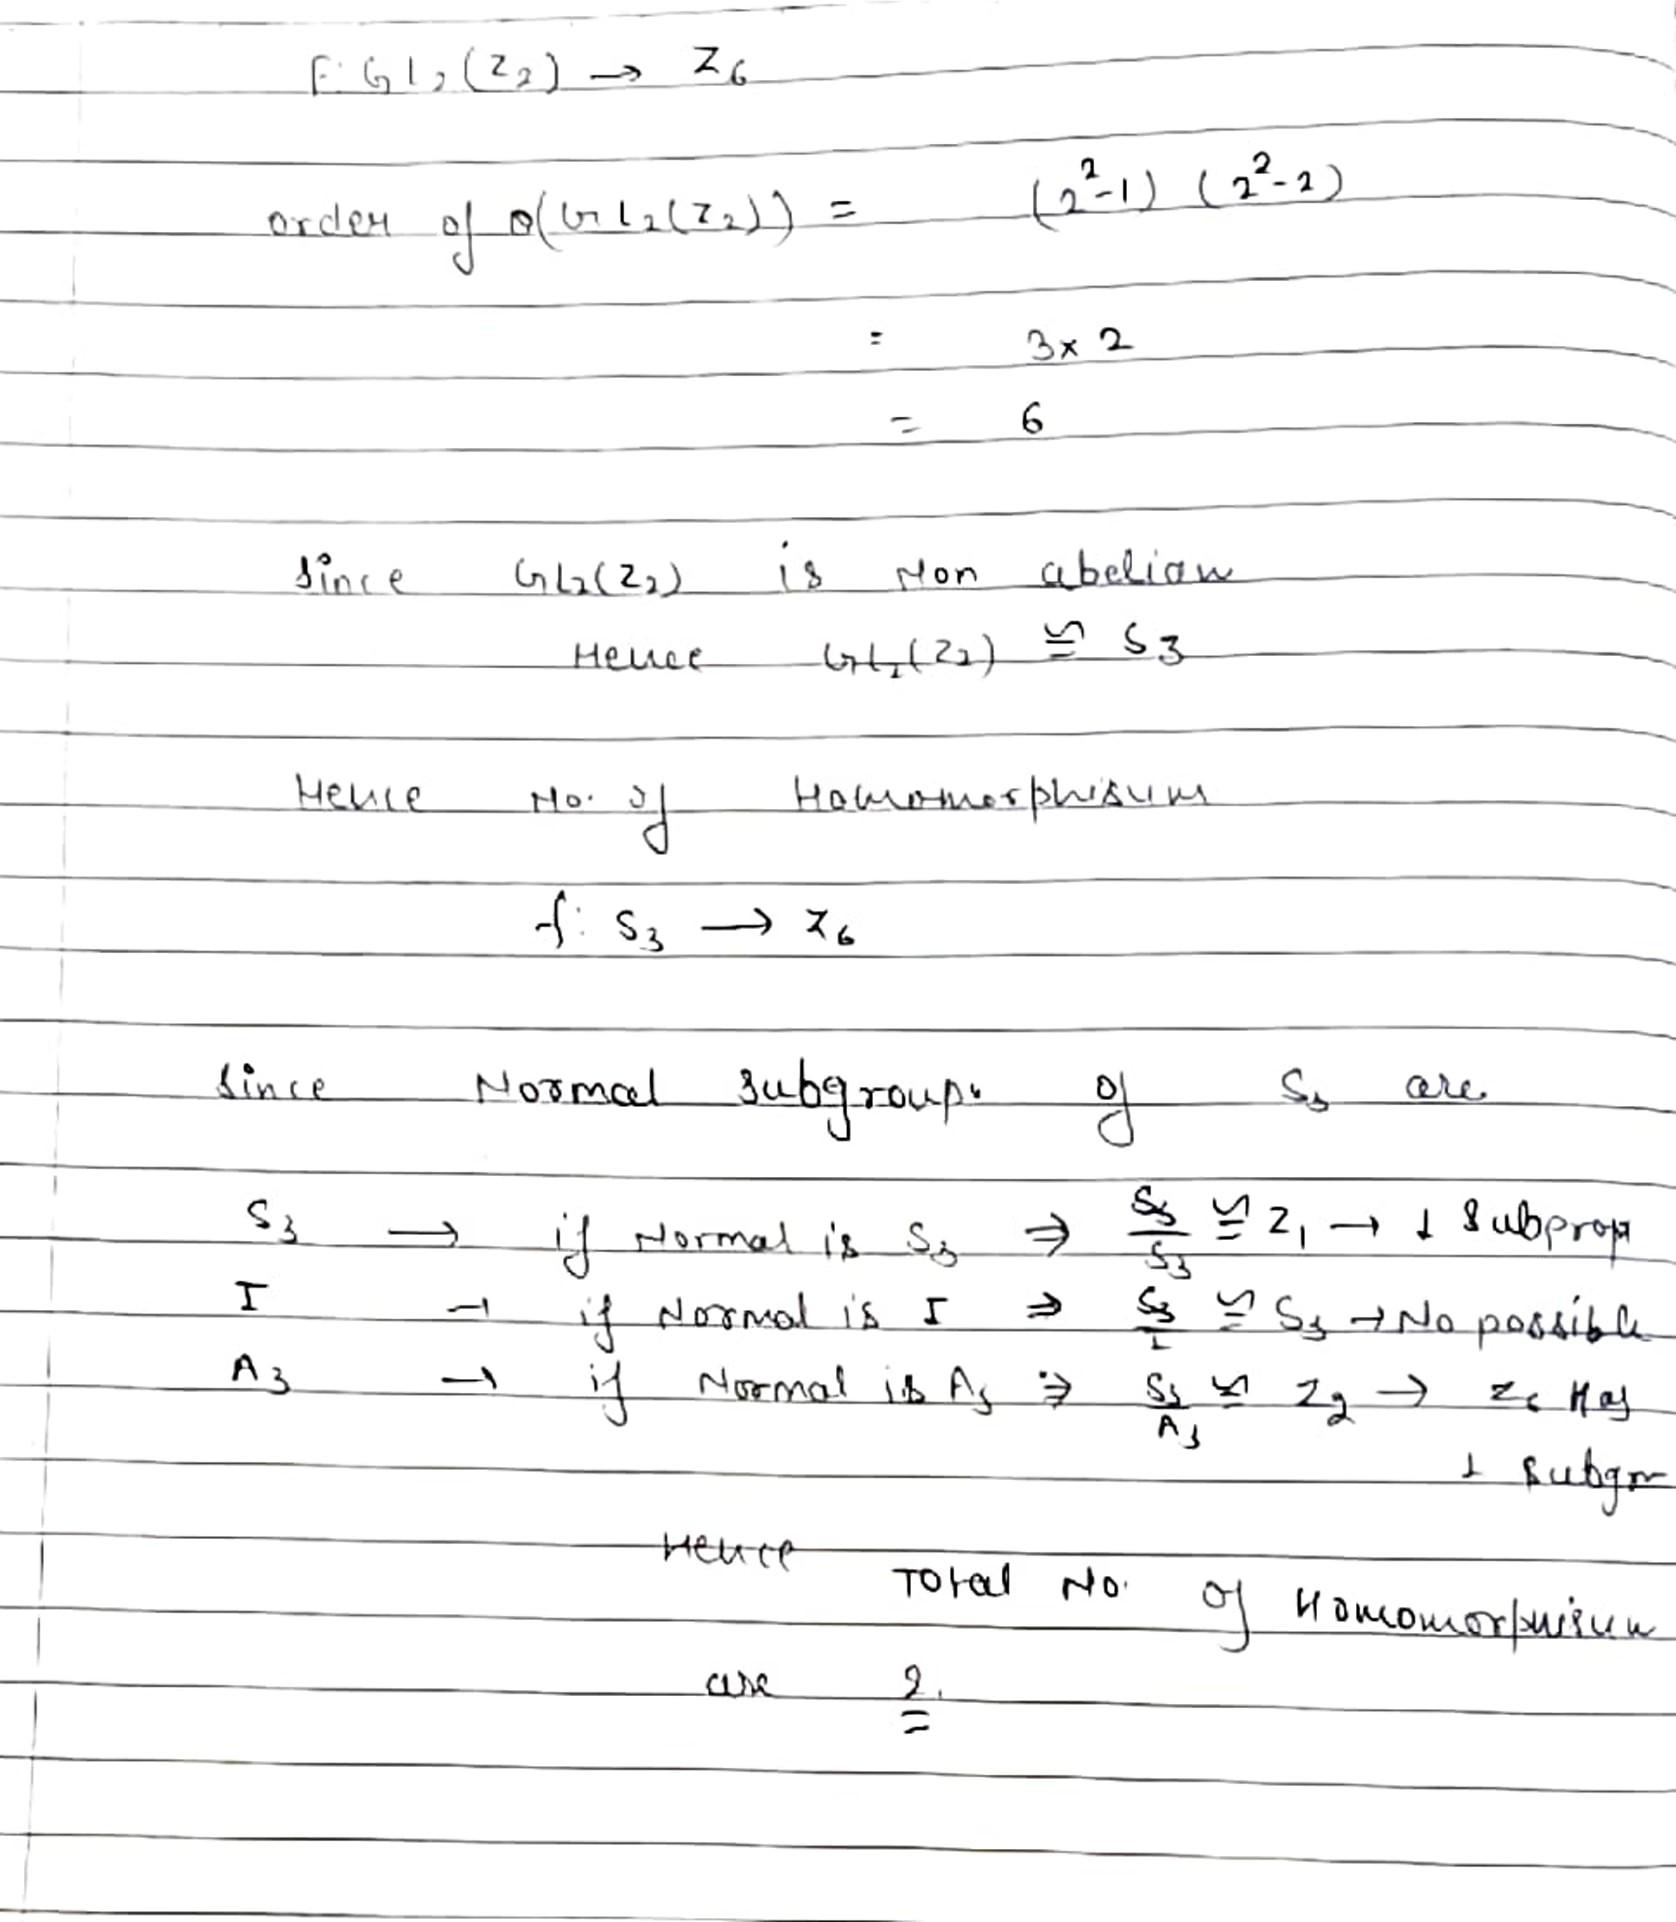 F: GL2(Z2) → Z6
order of O(GL2(Z2)) = (2²-1) (2²-2)
= 3x2
= 6
Since GL2(Z2) is Non abelian
Hence GL2(Z2) ≅ S3
Hence No. of Homomorphisum
f: S3 → Z6
Since Normal Subgroups of S3 are
S3 → if Normal is S3 ⇒ S3/S3 ≅ Z1 → 1 Subgrop
I → if Normal is I ⇒ S3/I ≅ S3 → No possible
A3 → if Normal is A3 ⇒ S3/A3 ≅ Z2 → Z6 Has
1 Subgr
Hence
Total No. of Homomorphisum
are 2.